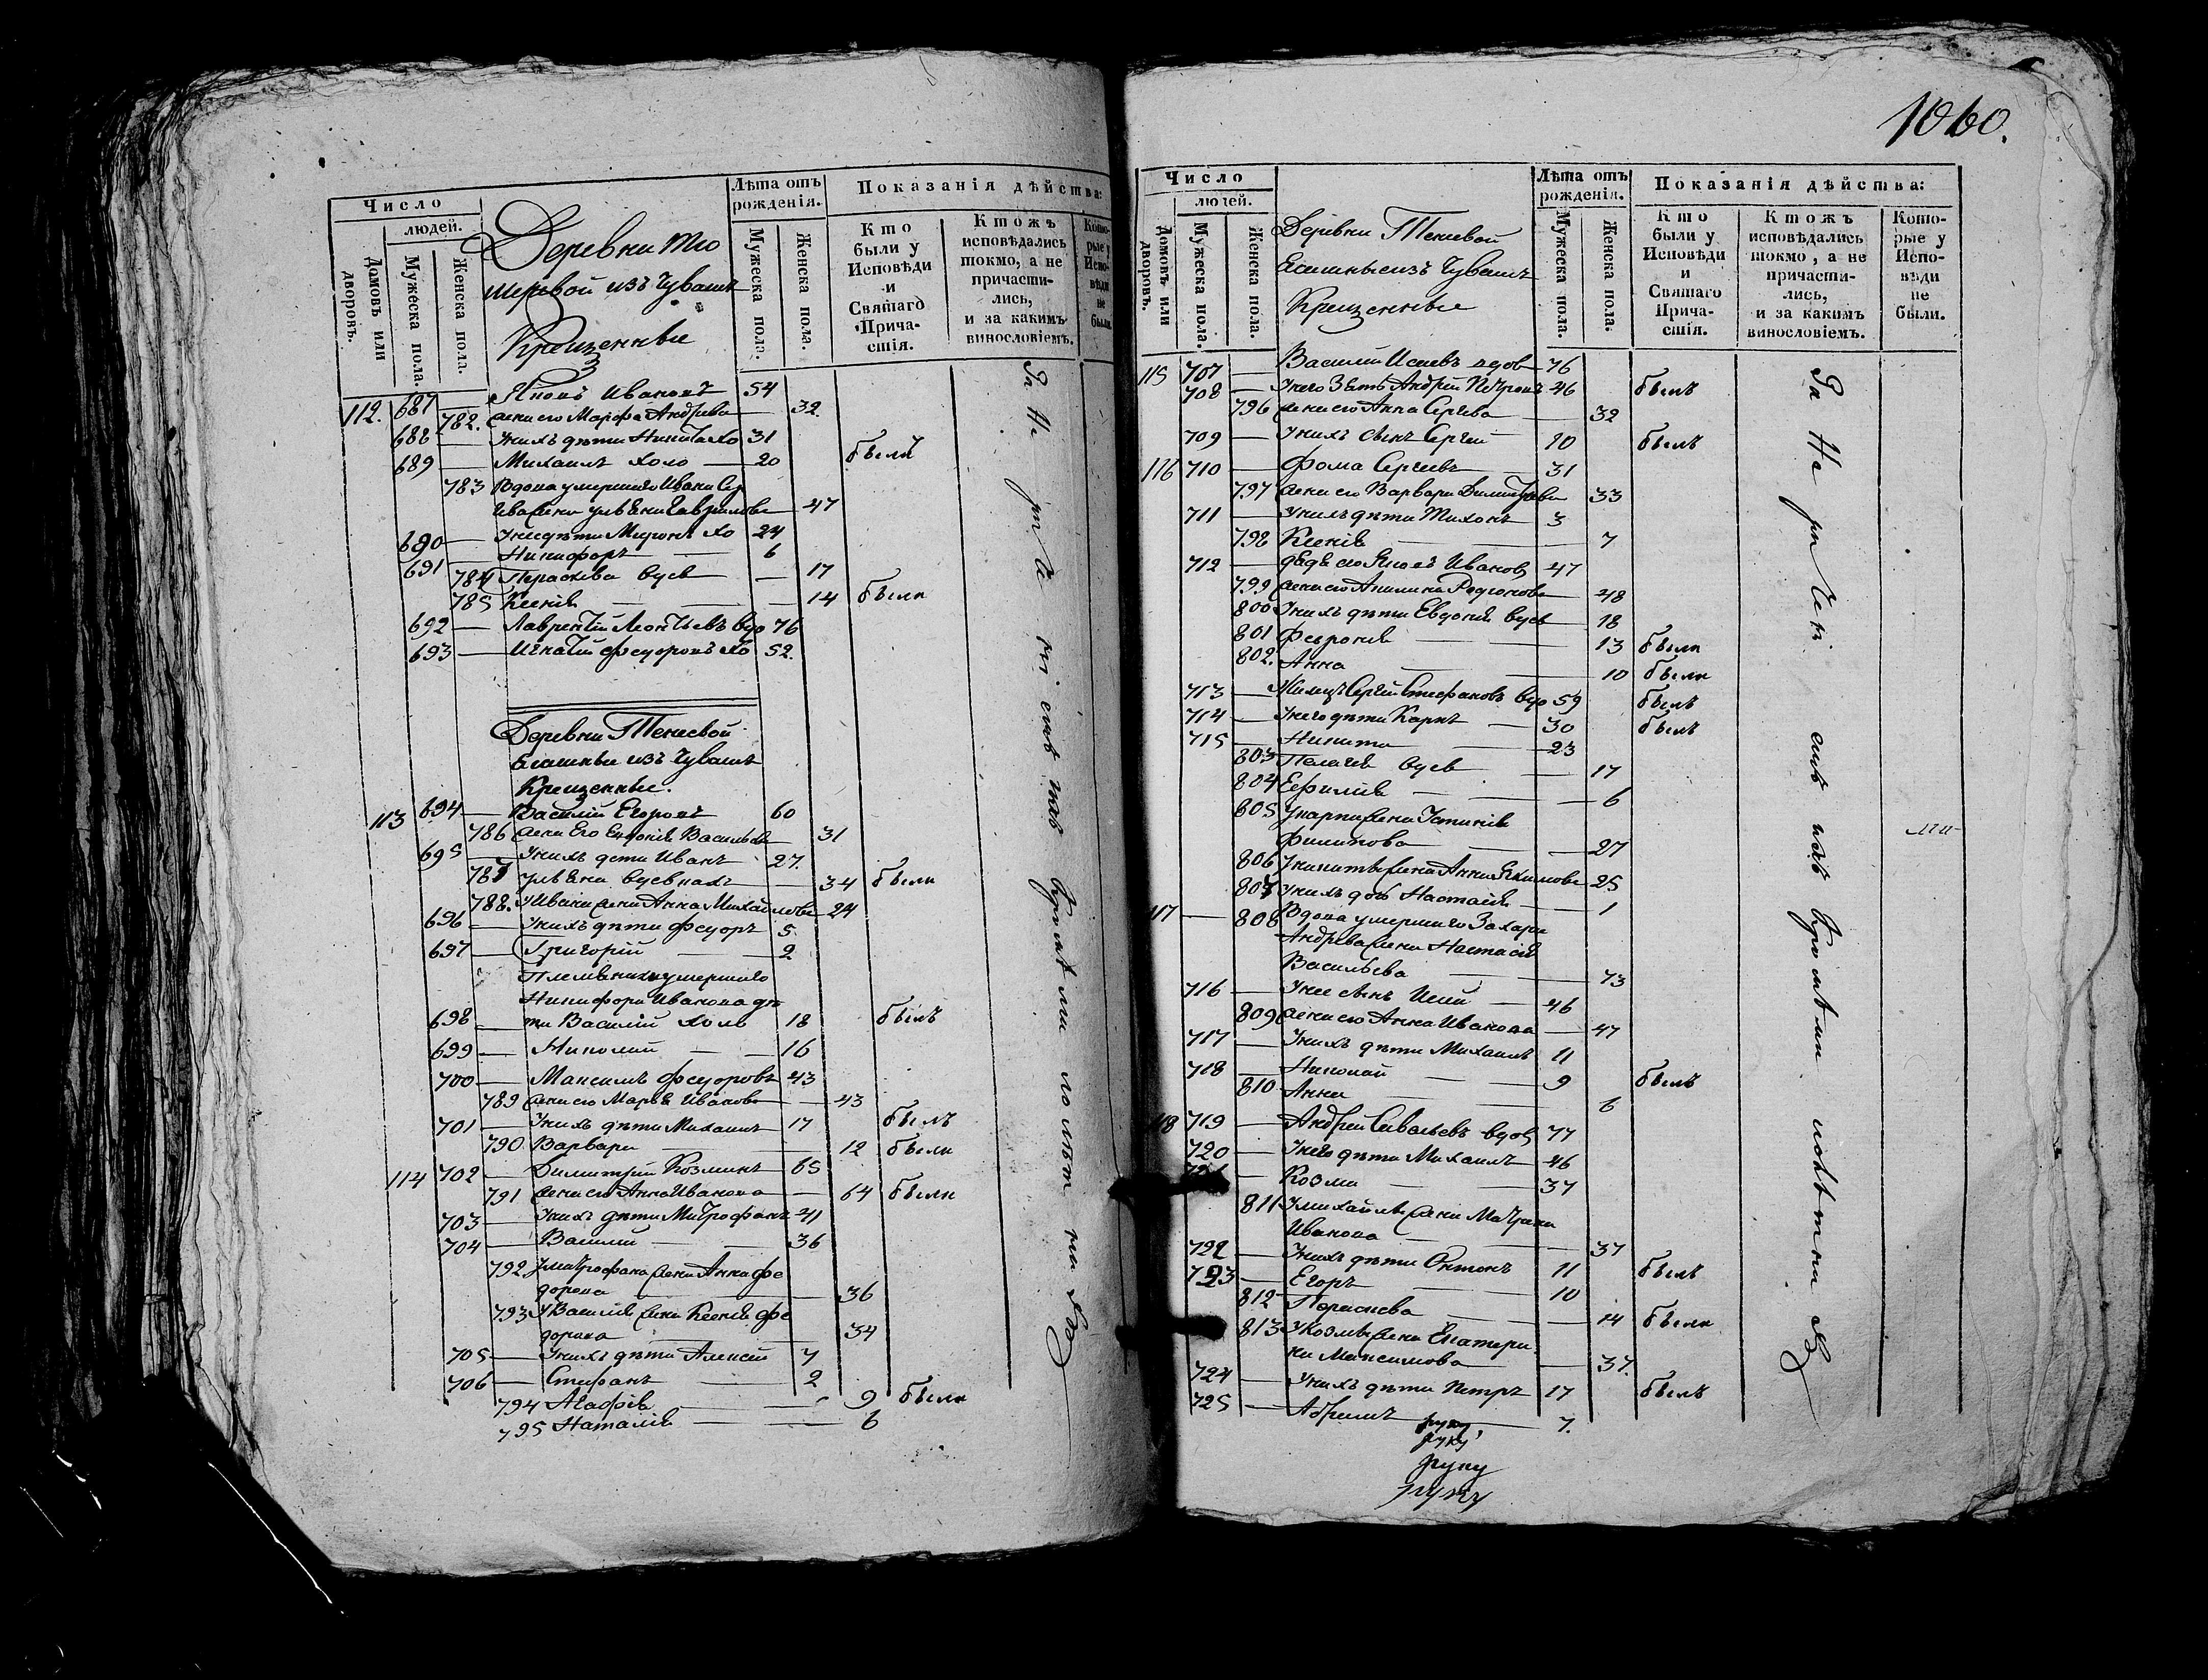 Число
людей.
Домовъ или дворовъ.
Мужеска пола.
Женска пола.
Деревни Тю
шеревой изъ Чувашъ
Крещенные
Лѣта отъ рожденія.
Мужеска пола.
Женска пола.
Показанія дѣйства:
Кто были у Исповѣди и Святаго Причастія.
Ктожъ исповѣдались токмо, а не причастились, и за какимъ винословіемъ.
Которые у Исповѣди не были.
112. 687 — Иванова 54
782. жена его Марфа Андреева — 32
688 — У нихъ дѣти Никита хо 31
689 — Михаилъ холо — 20 были
783 Вдова умершаго Ивана Сер
жена Ульяна Гаврилова — 47
690 — У нее дѣти Миронъ хо 24
691 Никифоръ — 6
784 Параскева — 17
785 Ксенія — 14 были
692 — Лаврентій Леонтьевъ вдо 76
693 — Игнатій Федоровъ хо 52.
Деревни Тенеевой
Ясашные изъ Чувашъ
Крещенные.
113 694 — Василій Егоровъ 60
786 жена Его Евдокія Васильева 31
695 — У нихъ дети Иванъ 27.
787 Ульяна — 34 были
788. У Ивана жена Анна Михайлова 24
696 — У нихъ дѣти Федоръ 5.
697 — Григорій — 2
Племянники умершаго
Никифора Иванова дѣ
698 — ти Василій холо 18 былъ
699 — Николай — 16
700 — Максимъ Федоровъ 43
789 жена его Марья Иванова — 43
701 — У нихъ дѣти Михаилъ 17 былъ
790 Варвара — 12 была
114 702 — Димитрій Козминъ 65
791 жена его Анна Иванова — 64 были
703 — У нихъ дѣти Митрофанъ 41
704 — Василій — 36
792 У Митрофана жена Анна Фе
дорова — 36
793 У Василія жена Ксенія Фе
дорова — 34
705 — У нихъ дѣти Алексей 7
706 — Стефанъ 2
794 Агафія — 9 была
795 Наталія — 6
1060.
Число
людей.
Домовъ или дворовъ.
Мужеска пола.
Женска пола.
Деревни Тенеевой
Ясашные изъ Чувашъ
Крещенные
Лѣта отъ рожденія.
Мужеска пола.
Женска пола.
Показанія дѣйства:
Кто были у Исповѣди и Святаго Причастія.
Ктожъ исповѣдались токмо, а не причастились, и за какимъ винословіемъ.
Которые у Исповѣди не были.
115 707 — Василій Исаевъ вдов 76
708 — У него Зять Андрей Петровъ 46 былъ
796 жена его Анна Сергеева — 32
709 — У нихъ сынъ Сергей 10 былъ
116 710 — Фома Сергеевъ 31
797 жена его Варвара Димитриева 33
711 — У нихъ дѣти Тихонъ 3
798 Ксенія — 7
712 — дядя его Иванов 47
799 жена его Акилина Родионова 48
800 У нихъ дѣти Евдокия 18
801 Феврония — 13 была
802. Анна — 10 была
713 — Сергей Стефановъ вдо 59 былъ
714 — У него дѣти Карпъ — 30 былъ
715 — Никита — 23
803 Пелагея — 17
804 Ефимія — 6
805 У Карпа жена Устинія
Филипова — 27
806 У Никиты жена Анна Якимова 25
807 У нихъ дочь Настасія — 1
117 — 808 Вдова умершаго Захара
Андреева жена Настасія
Васильева — 73
716 — У нее сынъ Исай — 46
809 жена его Анна Иванова — 47
717 — У нихъ дѣти Михаилъ 11
718 — Николай — 9 былъ
810 Анна — 6
118 719 — Андрей Савельевъ вдов 77
720 — У него дѣти Михаилъ 46
721 — Козма — 37
811 У Михайлы жена Матрена
Иванова — 37
722 — У нихъ дѣти Антонъ 11 былъ
723 — Егоръ — 10
812 Параскева — 14 была
813 У Козмы жена Екатери
на Максимова — 37.
724 — У нихъ дѣти Петръ 17 былъ
725 — Абрамъ — 7.
руку
руку
руку
руку